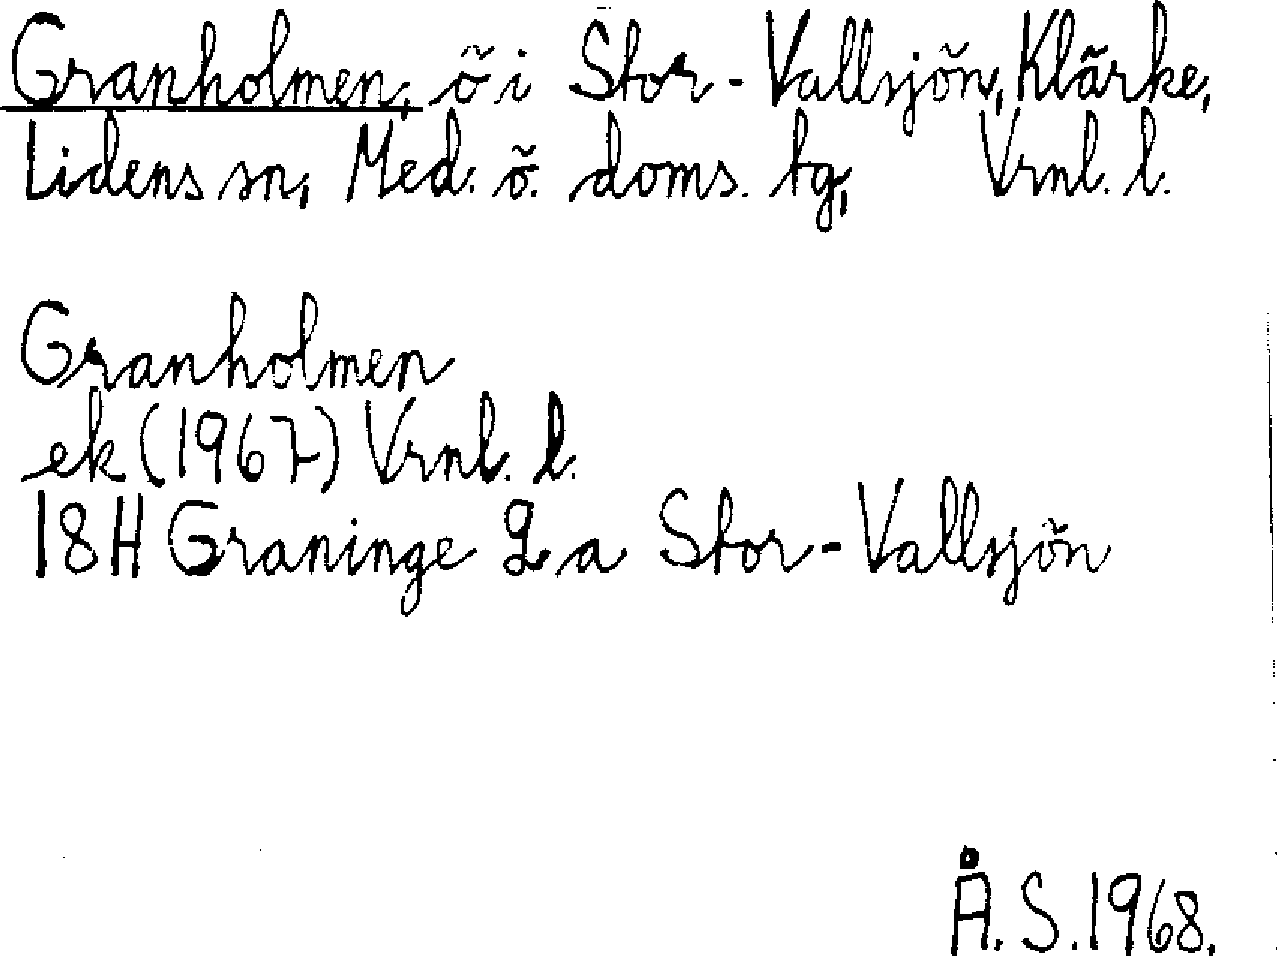 Granholmen, ö i Stor-Vallsjön, Klärke,
Lidens sn, Med. ö. doms. tg, Vrnl. l.
Granholmen
ek (1967) Vrnl. l.
18H Graninge 2 a Stor-Vallsjön
Å. S. 1968.